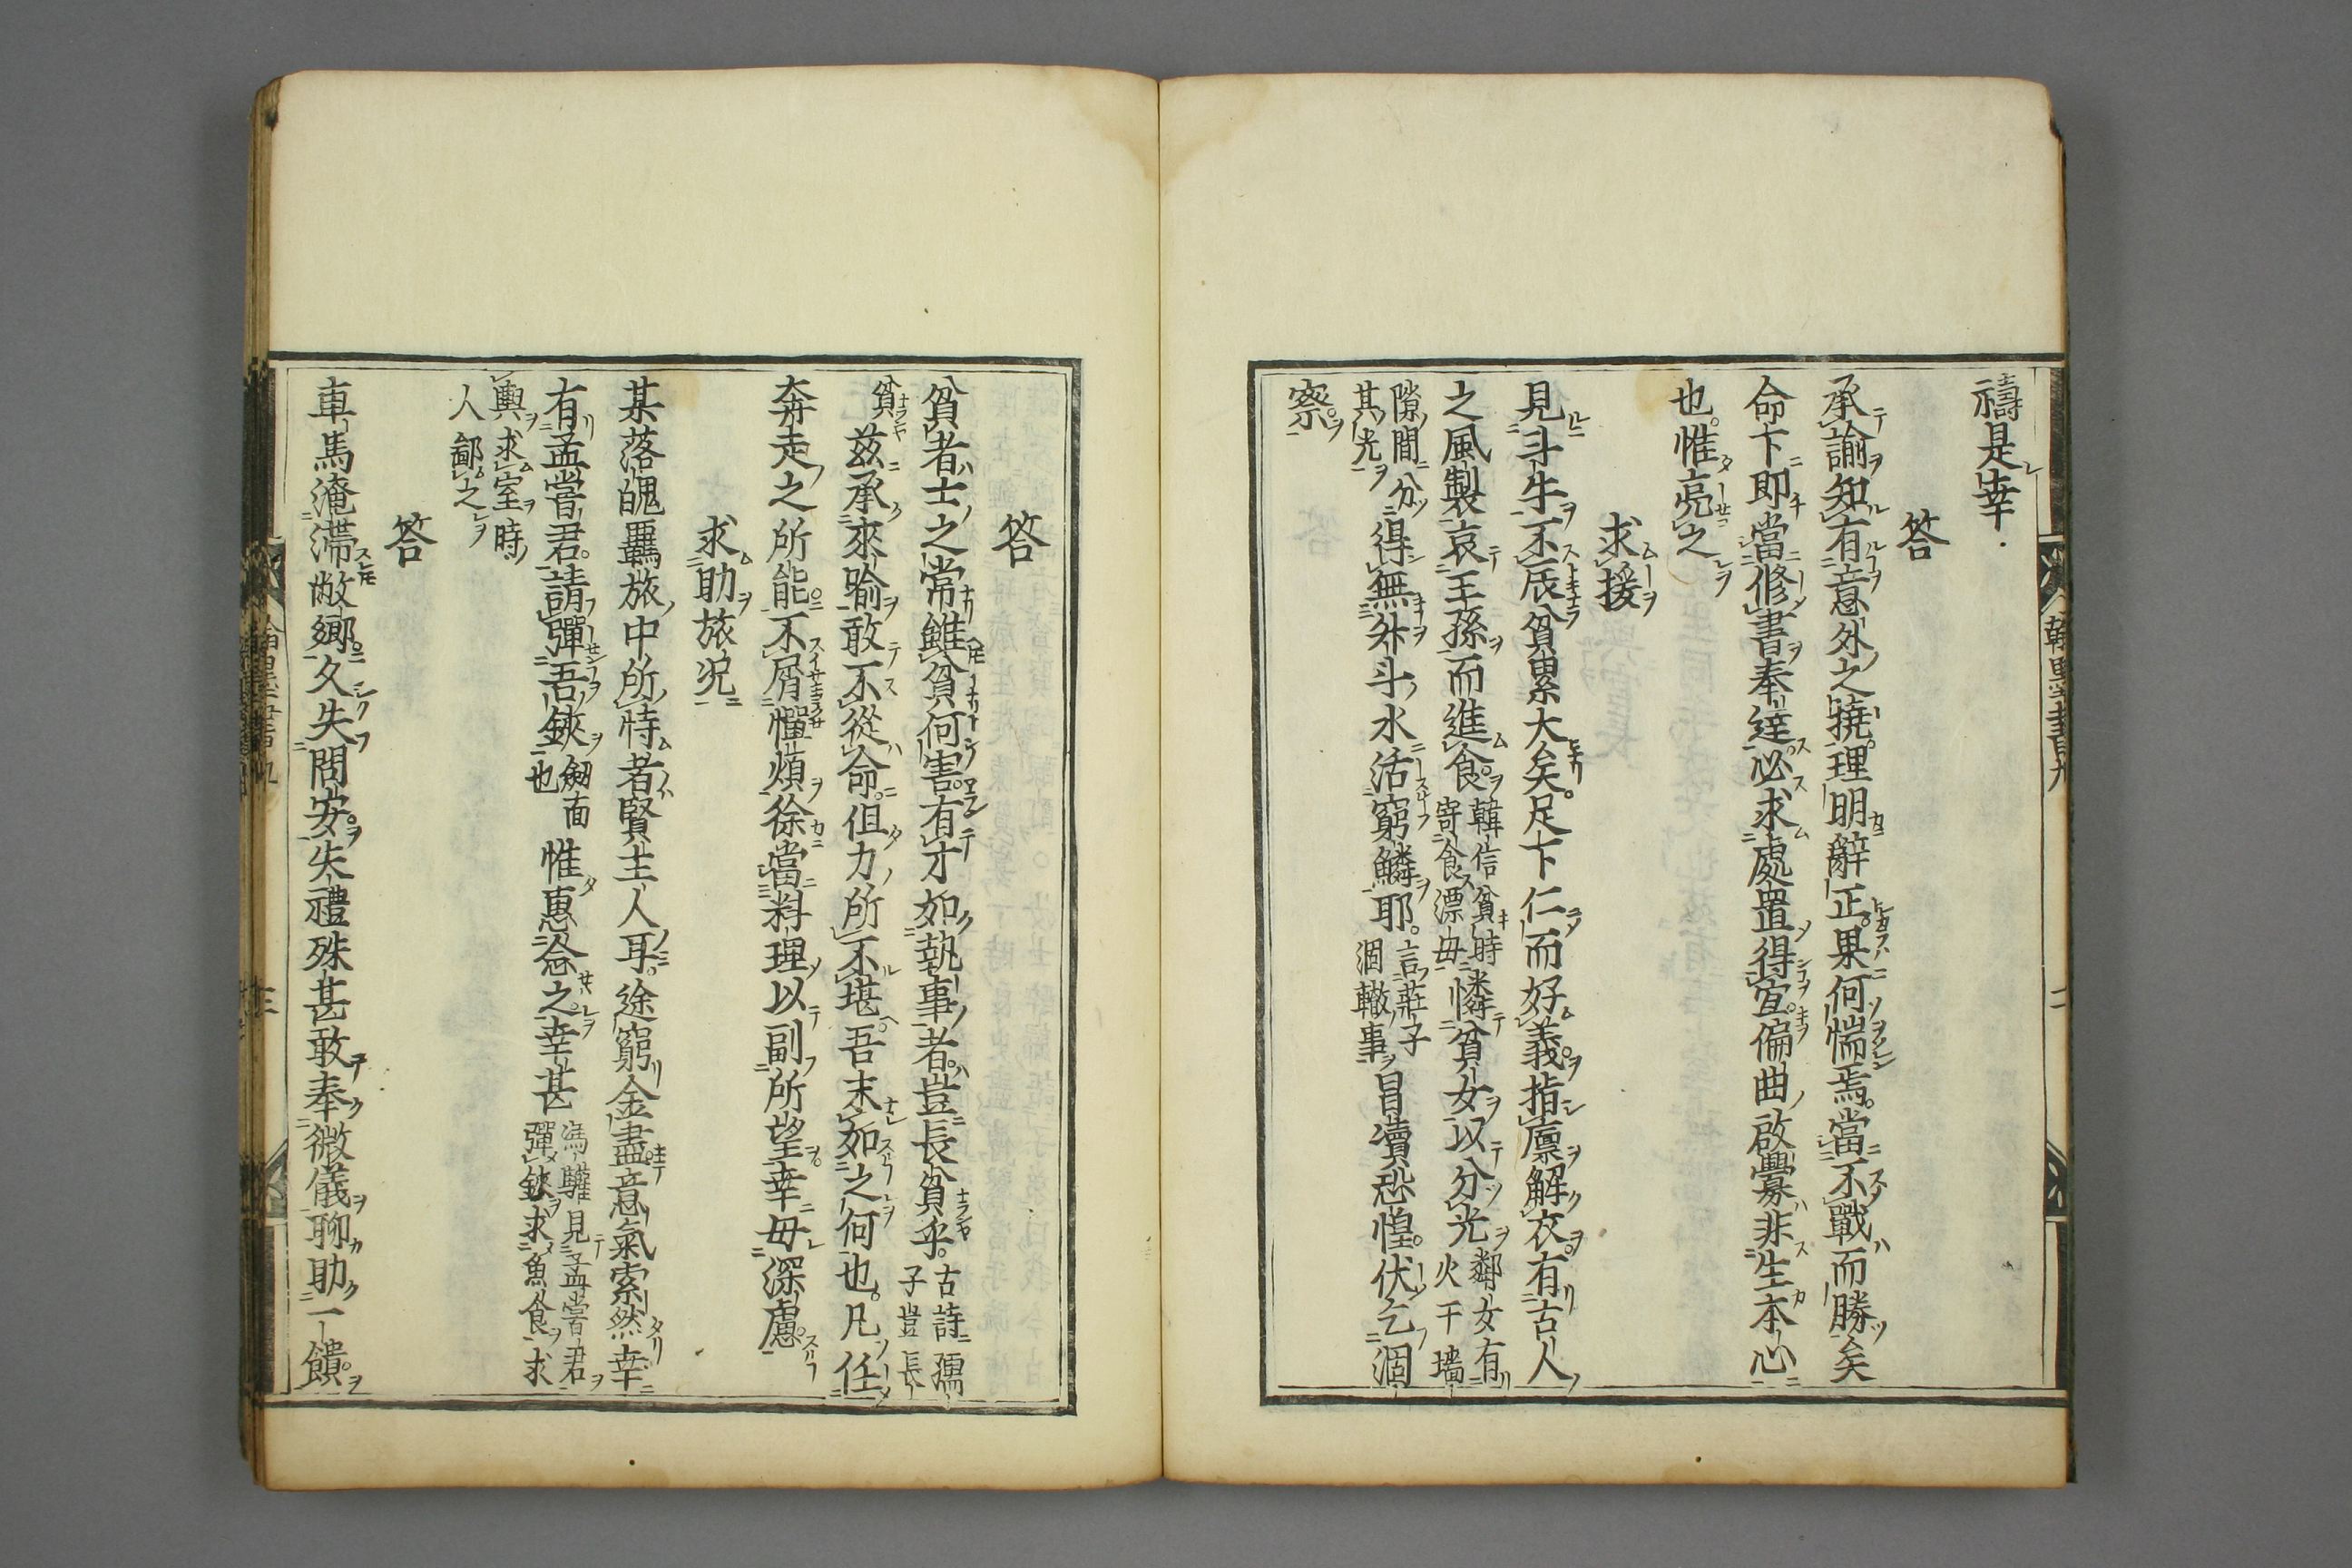 禱是幸
答
承諭知有意外之撓理明辭正果何惴焉當不戰而勝矣
命下即當修書奉達必求處置得宜偏曲啟釁非生本心
也惟亮之
求援
見斗牛不辰貧累大矣足下仁而好義指廩解衣有古人
之風製哀王孫而進食韓信貧時寄食漂母憐貧女以分光鄰女有隙間分其光
火于墻
得無升斗水活窮鱗耶言莊子涸轍事冒瀆恐惶伏乞涸
察
答
貧者士之常雖貧何害有才如執事者豈長貧乎古詩孺子豈長貧
茲承來喻敢不從命但力所不堪吾末如之何也凡任
奔走之所能不屑憚煩徐當料理以副所望幸毋深慮
求助旅況
某落魄羈旅中所恃者賢主人耳途窮金盡意氣索然幸
有孟嘗君請彈吾鋏劒面也惟惠念之幸甚馮驩見孟嘗君彈鋏求魚食求
輿求室時人鄙之
答
車馬淹滯敝鄉久失問安失禮殊甚敢奉微儀聊助一饋